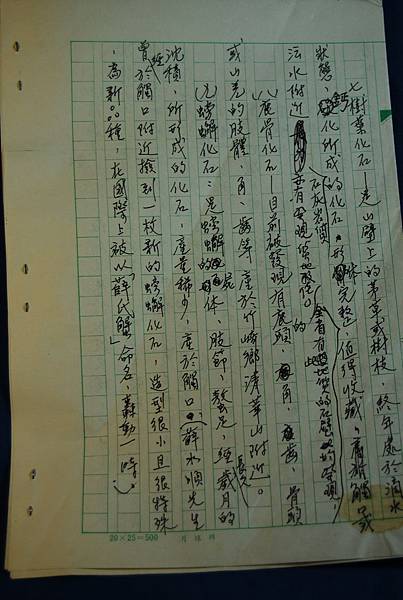 七樹葉化石—是山壁上的茅草或樹枝，終年處於滴水
狀態，鈣化所成的化石。形體完整，值得收藏，產於觸口或
沄水附近
在灰岩價
全省有此地質的石壁
八鹿骨化石—目前被發現有鹿頭，角，齒，骨頭
或山羌的肢體、角、齒等產於竹崎鄉清華山附近。
九螃蟹化石：是螃蟹的屍体，肢節，螯足，經歲月的
沈積，所形成的化石，產量稀少，產於觸口，薛水順先生
曾經於觸口附近撿到一枚新的螃蟹化石，造型很小且很特殊
，為新品種，在國際上被以「薛氏蟹」命名，轟動一時。
20×25=500